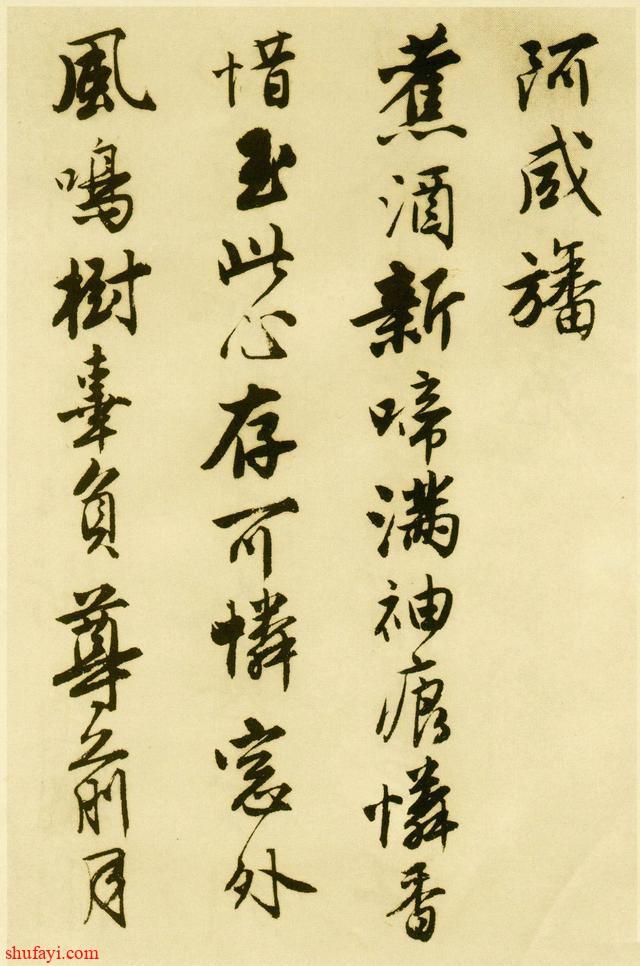 阿咸旛
蕉酒新啼滿袖痕憐香
惜玉此心存可憐窓外
風鳴樹辜負尊前月
shufayi.com